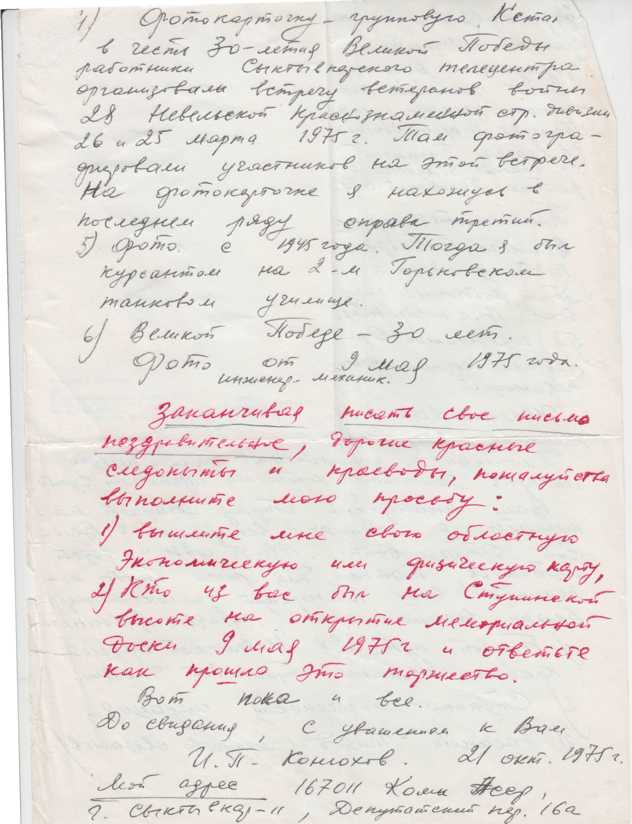 1) Фотокарточку - групповую. Кста.
в честь 30-летия Великой Победы
работники Сыктывкарского телецентра
организовали встречу ветеранов войны
28 Невельской Краснознаменной стр. дивизии
26 и 25 марта 1975 г. Там фотогра-
фировали участников на этой встрече.
На фотокарточке я нахожусь в
последнем ряду справа третий.
5) Фото. с 1945 года. Тогда я был
курсантом на 2-м Горьковском
танковом училище.
6) Великой Победе - 30 лет.
Фото от 9 мая 1975 года.
инженер-механик.
Заканчивая писать свое письмо
поздравительное, дорогие красные
следопыты и краеведы, пожалуйста
выполните мою просьбу:
1) вышлите мне свою областную
Экономическую или физическую карту,
2) Кто из вас был на Ступинской
высоте на открытие мемориальной
доски 9 мая 1975 г и ответьте
как прошло это торжество.
Вот пока и все.
До свидания, с уважением к Вам
И.П. Конюхов. 21 окт. 1975 г.
Мой адрес 167011 Коми Асср,
г. Сыктывкар-11, Депутатский пер. 16а